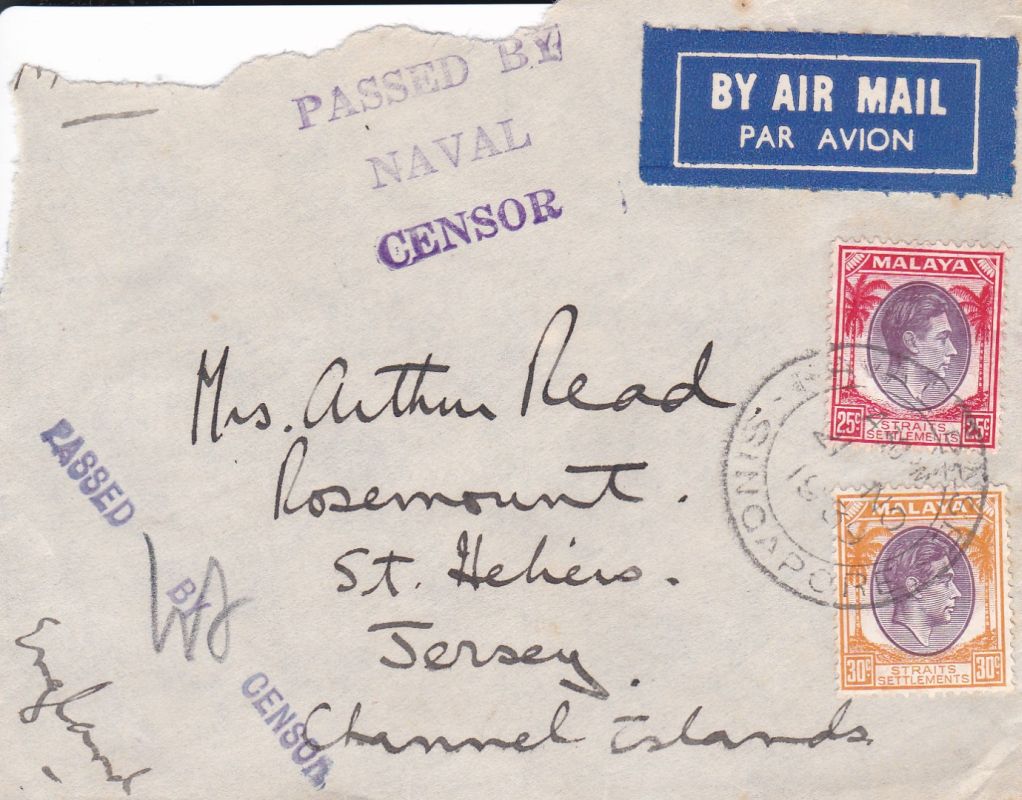 PASSED BY
NAVAL
CENSOR
BY AIR MAIL
PAR AVION
MALAYA
25c STRAITS SETTLEMENTS 25c
Mrs. Arthur Read.
Rosemount.
St. Heliers.
Jersey.
Channel Islands
England
PASSED
BY
CENSOR
SINGAPORE
MALAYA
30c STRAITS SETTLEMENTS 30c